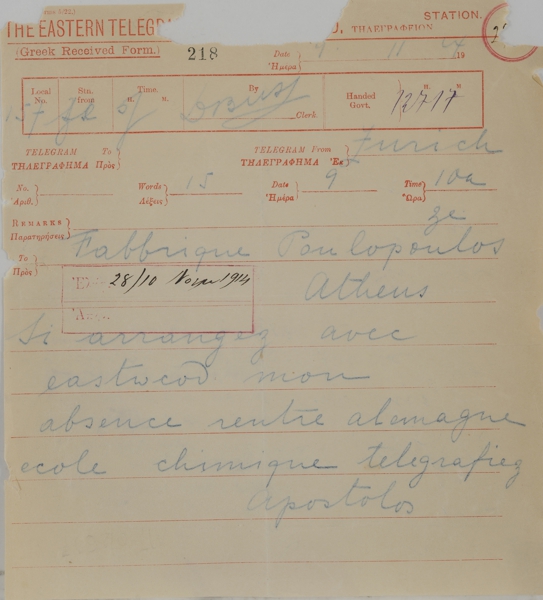 THE EASTERN TELEGRA
STATION.
ΤΗΛΕΓΡΑΦΕΙΟΝ
(Greek Received Form.)
218
Date
Ἡμέρα
11
19
Local No.
Stn. from
Time.
H. M.
By
Clerk.
Handed Govt.
H. M.
157
TELEGRAM To
ΤΗΛΕΓΡΑΦΗΜΑ Πρὸς
TELEGRAM From Zurich
ΤΗΛΕΓΡΑΦΗΜΑ Ἐκ
No.
Ἀριθ.
Words 15
Λέξεις
Date 9
Ἡμέρα
Time 10a
Ὥρα
REMARKS
Παρατηρήσεις
To
Πρὸς
Fabbrique Poulopoulos
28/10 Νοεμ 1914
Athens
Si arrangez avec
eastwood mon
absence rentre alemagne
ecole chimique telegrafiez
Apostolos